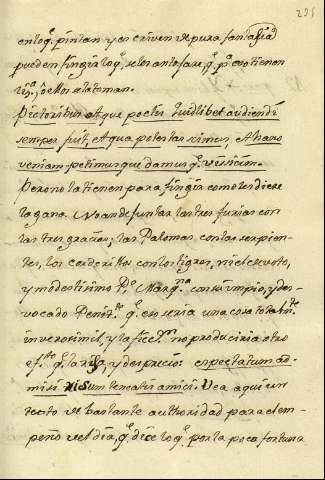 235
en loq.̃ pintan y escriven de pura fantasía
pueden fingir loq.̃ se les antojare, q.̃ p.ᵃ eso tienen
lic.ᵃ, ò ellos se la toman.
Pictoribus atque poetis quidlibet audiendi
semper fuit, Aqua potestas scimus, et hanc
veniam petimusque damusq.̃ vicisim.
Pero no la tienen para fingir como se les diere
la gana. No an de juntar las tres furias con
las tres gracias, las Palomas con las serpien-
tes, los corderitos con los tigres, ni el devoto,
y modestisimo P.ᵉ con un impio, y des-
vocado q.̃ eso seria una cosa totalm.ᵗᵉ
inverosimil, y la ficc.ᵒⁿ no produciria otro
ef.ᵗᵒ q.̃ la risa, y desprecio: expectatum ad-
misi risum teneatis amici. Vea aqui un
texto de bastante authoridad para el em-
peño del dia, q.̃ dice loq.̃ por la poca fortuna